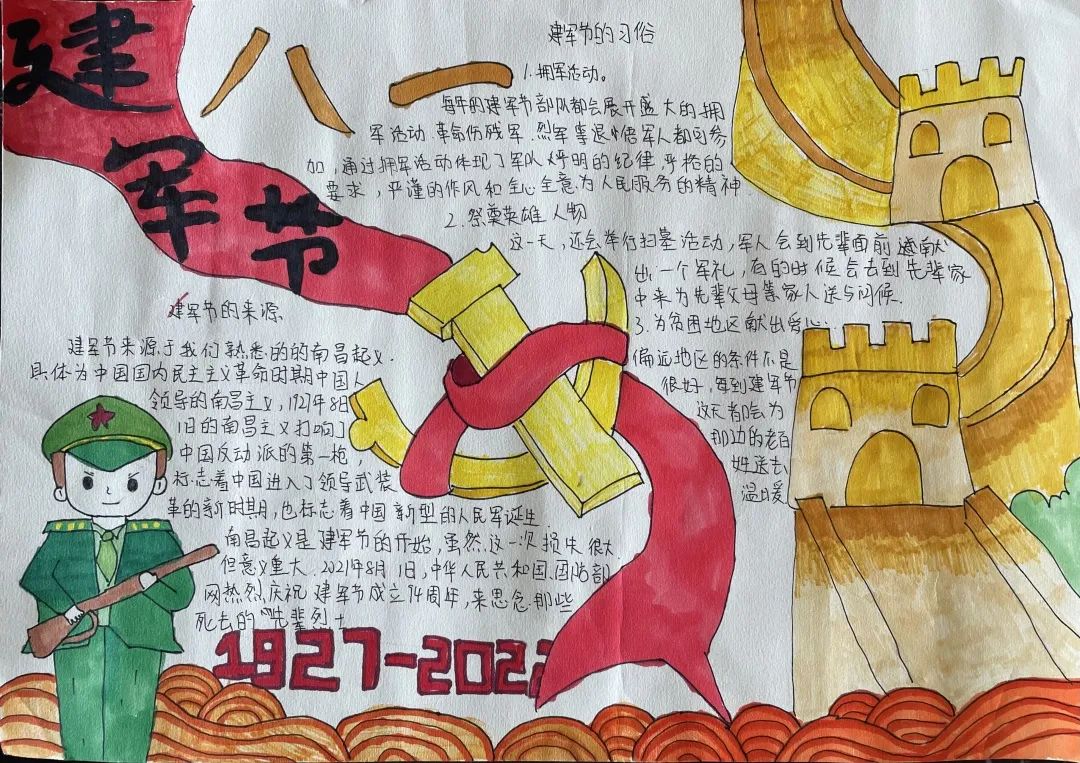 建军节
八一
建军节的习俗
1.拥军活动。
每年的建军节部队都会展开盛大的拥
军活动.革命伤残军.烈军等退休信军人都可参
加,通过拥军活动体现了军队严明的纪律严格的
要求,严谨的作风和全心全意为人民服务的精神
2.祭奠英雄人物
这一天,还会举行扫墓活动,军人会到先辈面前 献
出一个军礼,有的时候会去到先辈家
中来为先辈父母等家人送与问候.
3.为贫困地区献出爱心:
偏远地区的条件不是
很好,每到建军节
这天都会为
那边的老百
姓送去
温暖
建军节的来源
建军节来源于我们熟悉的的南昌起义.
具体为中国国内民主主义革命时期中国人
领导的南昌主义,1921年8日
1日的南昌主义打响了
中国反动派的第一枪,
标志着中国进入了领导武装
革的新时期,也标志着中国新型的人民军诞生.
南昌起义是建军节的开始,虽然这一次损失很大.
但意义重大.2021年8月1日,中华人民共和国.国防部
网热烈庆祝建军节成立94周年,来思念那些
死去的“先辈烈士
1927-2022